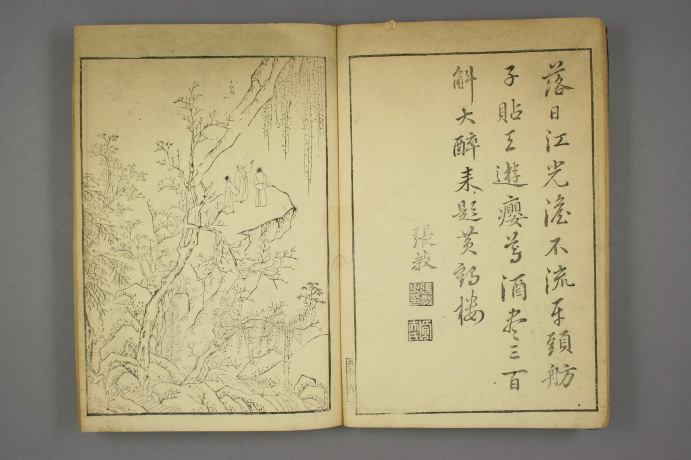 落日江光澹不流平頭舫
子貼天遊癭尊酒盡三百
斛大醉来題黄鶴樓
張毅